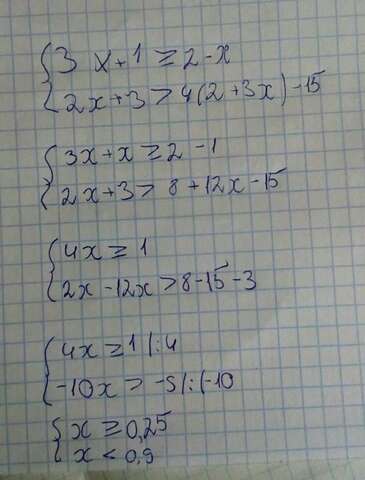 { 3x+1 ≥ 2-x
{ 2x+3 > 4(2+3x)-15
{ 3x+x ≥ 2-1
{ 2x+3 > 8+12x-15
{ 4x ≥ 1
{ 2x-12x > 8-15-3
{ 4x ≥ 1 |:4
{ -10x > -5 |:(-10
{ x ≥ 0,25
{ x < 0,5